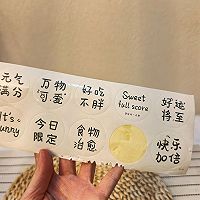 元气
满分
万物
可爱
好吃
不胖
Sweet
full score
好运
将至
It's
unny
今日
限定
食物
治愈
快乐
加倍